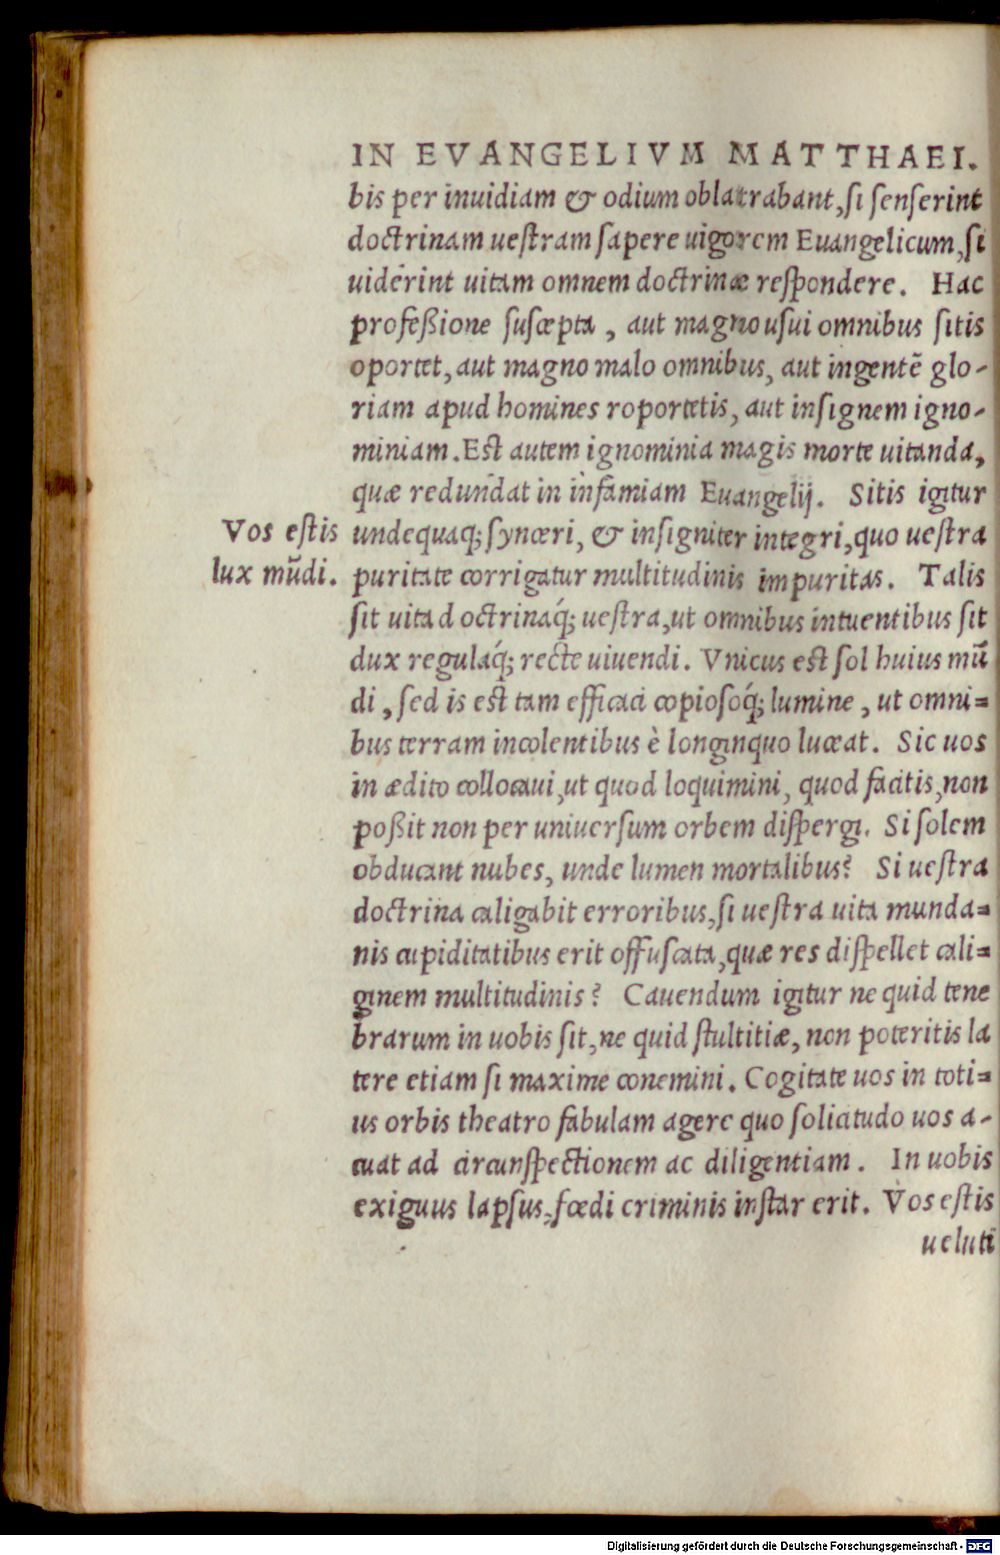 IN EVANGELIVM MATTHAEI.
bis per inuidiam & odium oblatrabant, ſi ſenſerint
doctrinam ueſtram ſapere uigorem Euangelicum, ſi
uiderint uitam omnem doctrinæ reſpondere. Hac
profeßione ſuſcepta, aut magno uſui omnibus ſitis
oportet, aut magno malo omnibus, aut ingentē glo-
riam apud homines roportetis, aut inſignem igno-
miniam. Eſt autem ignominia magis morte uitanda,
quæ redundat in infamiam Euangelij. Sitis igitur
Vos eſtis
lux mūdi.
undequaq; ſynceri, & inſigniter integri, quo ueſtra
puritate corrigatur multitudinis impuritas. Talis
ſit uita doctrinaq́; ueſtra, ut omnibus intuentibus ſit
dux regulaq́; recte uiuendi. Vnicus eſt ſol huius mū
di, ſed is eſt tam efficaci copioſoq́; lumine, ut omni=
bus terram incolentibus è longinquo luceat. Sic uos
in ædito collocaui, ut quod loquimini, quod facitis, non
poßit non per uniuerſum orbem diſpergi. Si ſolem
obducant nubes, unde lumen mortalibus? Si ueſtra
doctrina caligabit erroribus, ſi ueſtra uita munda=
nis cupiditatibus erit offuſcata, quæ res diſpellet cali=
ginem multitudinis? Cauendum igitur ne quid tene
brarum in uobis ſit, ne quid ſtultitiæ, non poteritis la
tere etiam ſi maxime conemini. Cogitate uos in toti=
us orbis theatro fabulam agere quo ſolicitudo uos a-
cuat ad circunſpectionem ac diligentiam. In uobis
exiguus lapſus, fœdi criminis inſtar erit. Vos eſtis
ueluti
Digitalisierung gefördert durch die Deutsche Forschungsgemeinschaft - DFG